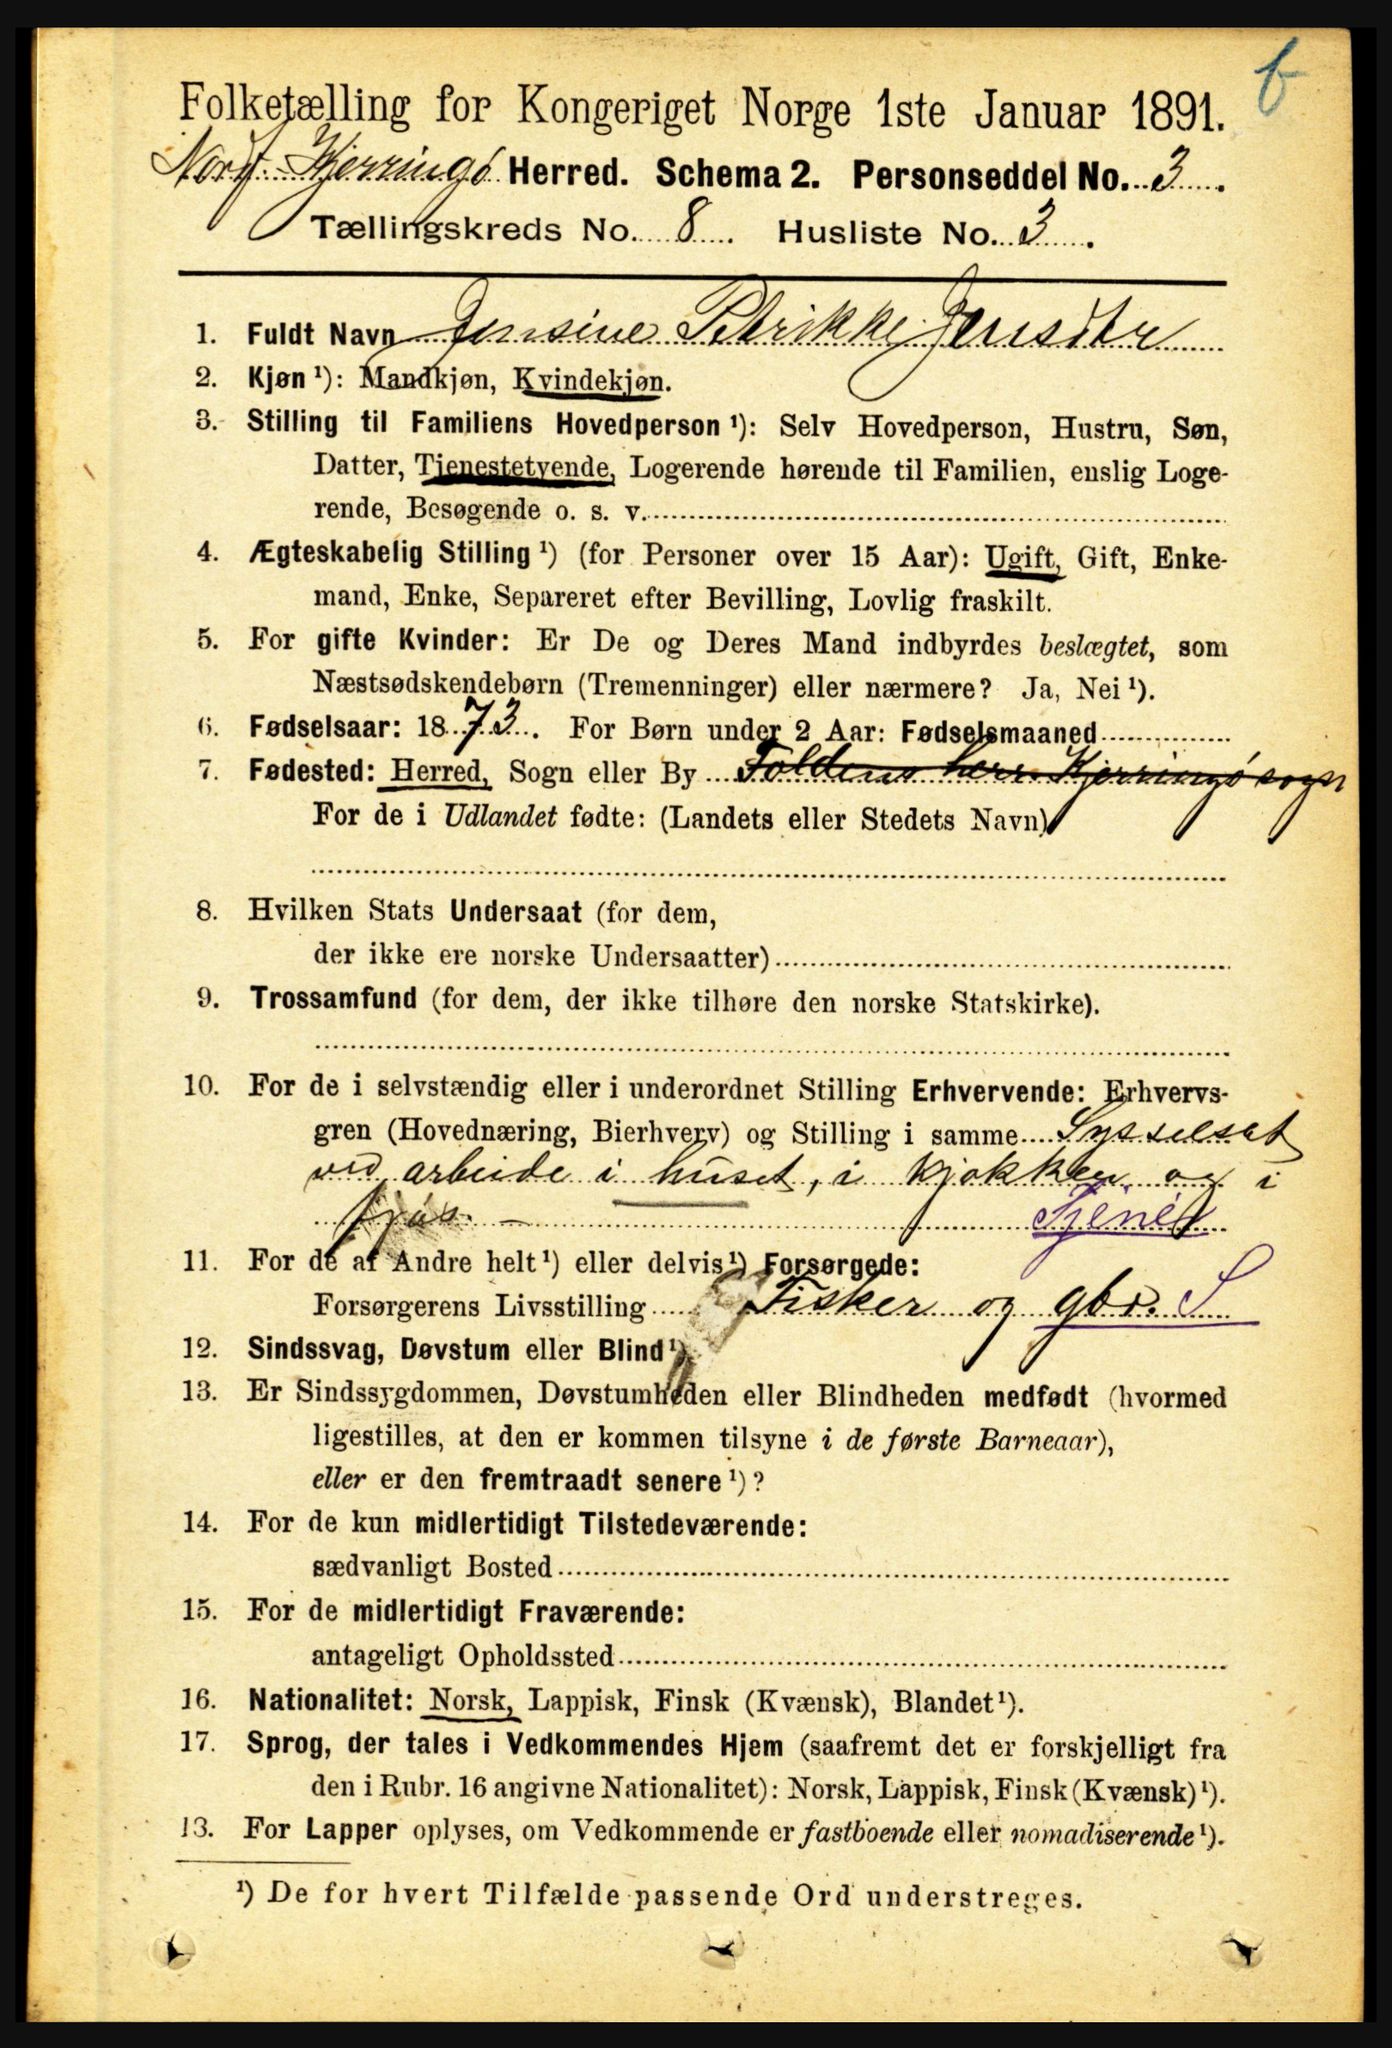 b
Folketælling for Kongeriget Norge 1ste Januar 1891.
Kjerringø Herred. Schema 2. Personseddel No. 3.
Tællingskreds No. 8. Husliste No. 3.
1. Fuldt Navn Jensine Petrikke Jensdtr
2. Kjøn ¹): Mandkjøn, Kvindekjøn.
3. Stilling til Familiens Hovedperson ¹): Selv Hovedperson, Hustru, Søn,
Datter, Tjenestetyende, Logerende hørende til Familien, enslig Loge-
rende, Besøgende o. s. v.
4. Ægteskabelig Stilling ¹) (for Personer over 15 Aar): Ugift, Gift, Enke-
mand, Enke, Separeret efter Bevilling, Lovlig fraskilt.
5. For gifte Kvinder: Er De og Deres Mand indbyrdes beslægtet, som
Næstsødskendebørn (Tremenninger) eller nærmere? Ja, Nei ¹).
6. Fødselsaar: 1873. For Børn under 2 Aar: Fødselsmaaned
7. Fødested: Herred, Sogn eller By Foldens herr. Kjerringø sogn
For de i Udlandet fødte: (Landets eller Stedets Navn)
8. Hvilken Stats Undersaat (for dem,
der ikke ere norske Undersaatter)
9. Trossamfund (for dem, der ikke tilhøre den norske Statskirke).
10. For de i selvstændig eller i underordnet Stilling Erhvervende: Erhvervs-
gren (Hovednæring, Bierhverv) og Stilling i samme Sysselsat
ved arbeide i huset, i kjøkken og i
fjøs. — Tjener
11. For de af Andre helt ¹) eller delvis ¹) Forsørgede:
Forsørgerens Livsstilling Fisker og gbr. S
12. Sindssvag, Døvstum eller Blind ¹).
13. Er Sindssygdommen, Døvstumheden eller Blindheden medfødt (hvormed
ligestilles, at den er kommen tilsyne i de første Barneaar),
eller er den fremtraadt senere ¹)?
14. For de kun midlertidigt Tilstedeværende:
sædvanligt Bosted
15. For de midlertidigt Fraværende:
antageligt Opholdssted
16. Nationalitet: Norsk, Lappisk, Finsk (Kvænsk), Blandet ¹).
17. Sprog, der tales i Vedkommendes Hjem (saafremt det er forskjelligt fra
den i Rubr. 16 angivne Nationalitet): Norsk, Lappisk, Finsk (Kvænsk) ¹).
13. For Lapper oplyses, om Vedkommende er fastboende eller nomadiserende ¹).
¹) De for hvert Tilfælde passende Ord understreges.